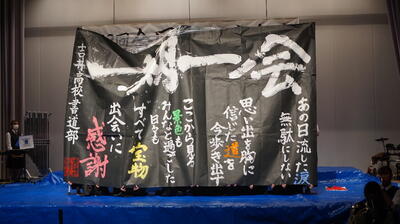 一期一会
あの日流した涙
無駄にしない
思い出を胸に
信じた道を
今歩き出す
ここから見る
景色も
みんなと過ごした
日々も
すべて宝物
出会いに
感謝
高校書道部